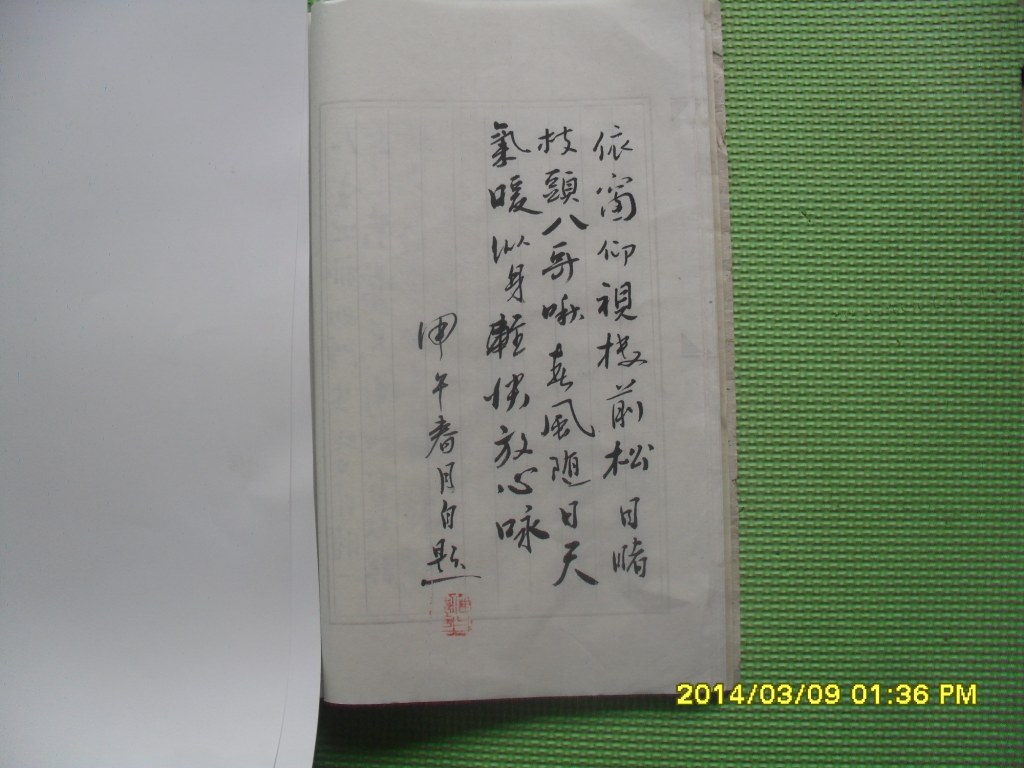 依窗仰視樓前松日睹
枝頭八哥啾春風隨日天
氣暖似身輕快放心咏
甲午春月自題
2014/03/09 01:36 PM